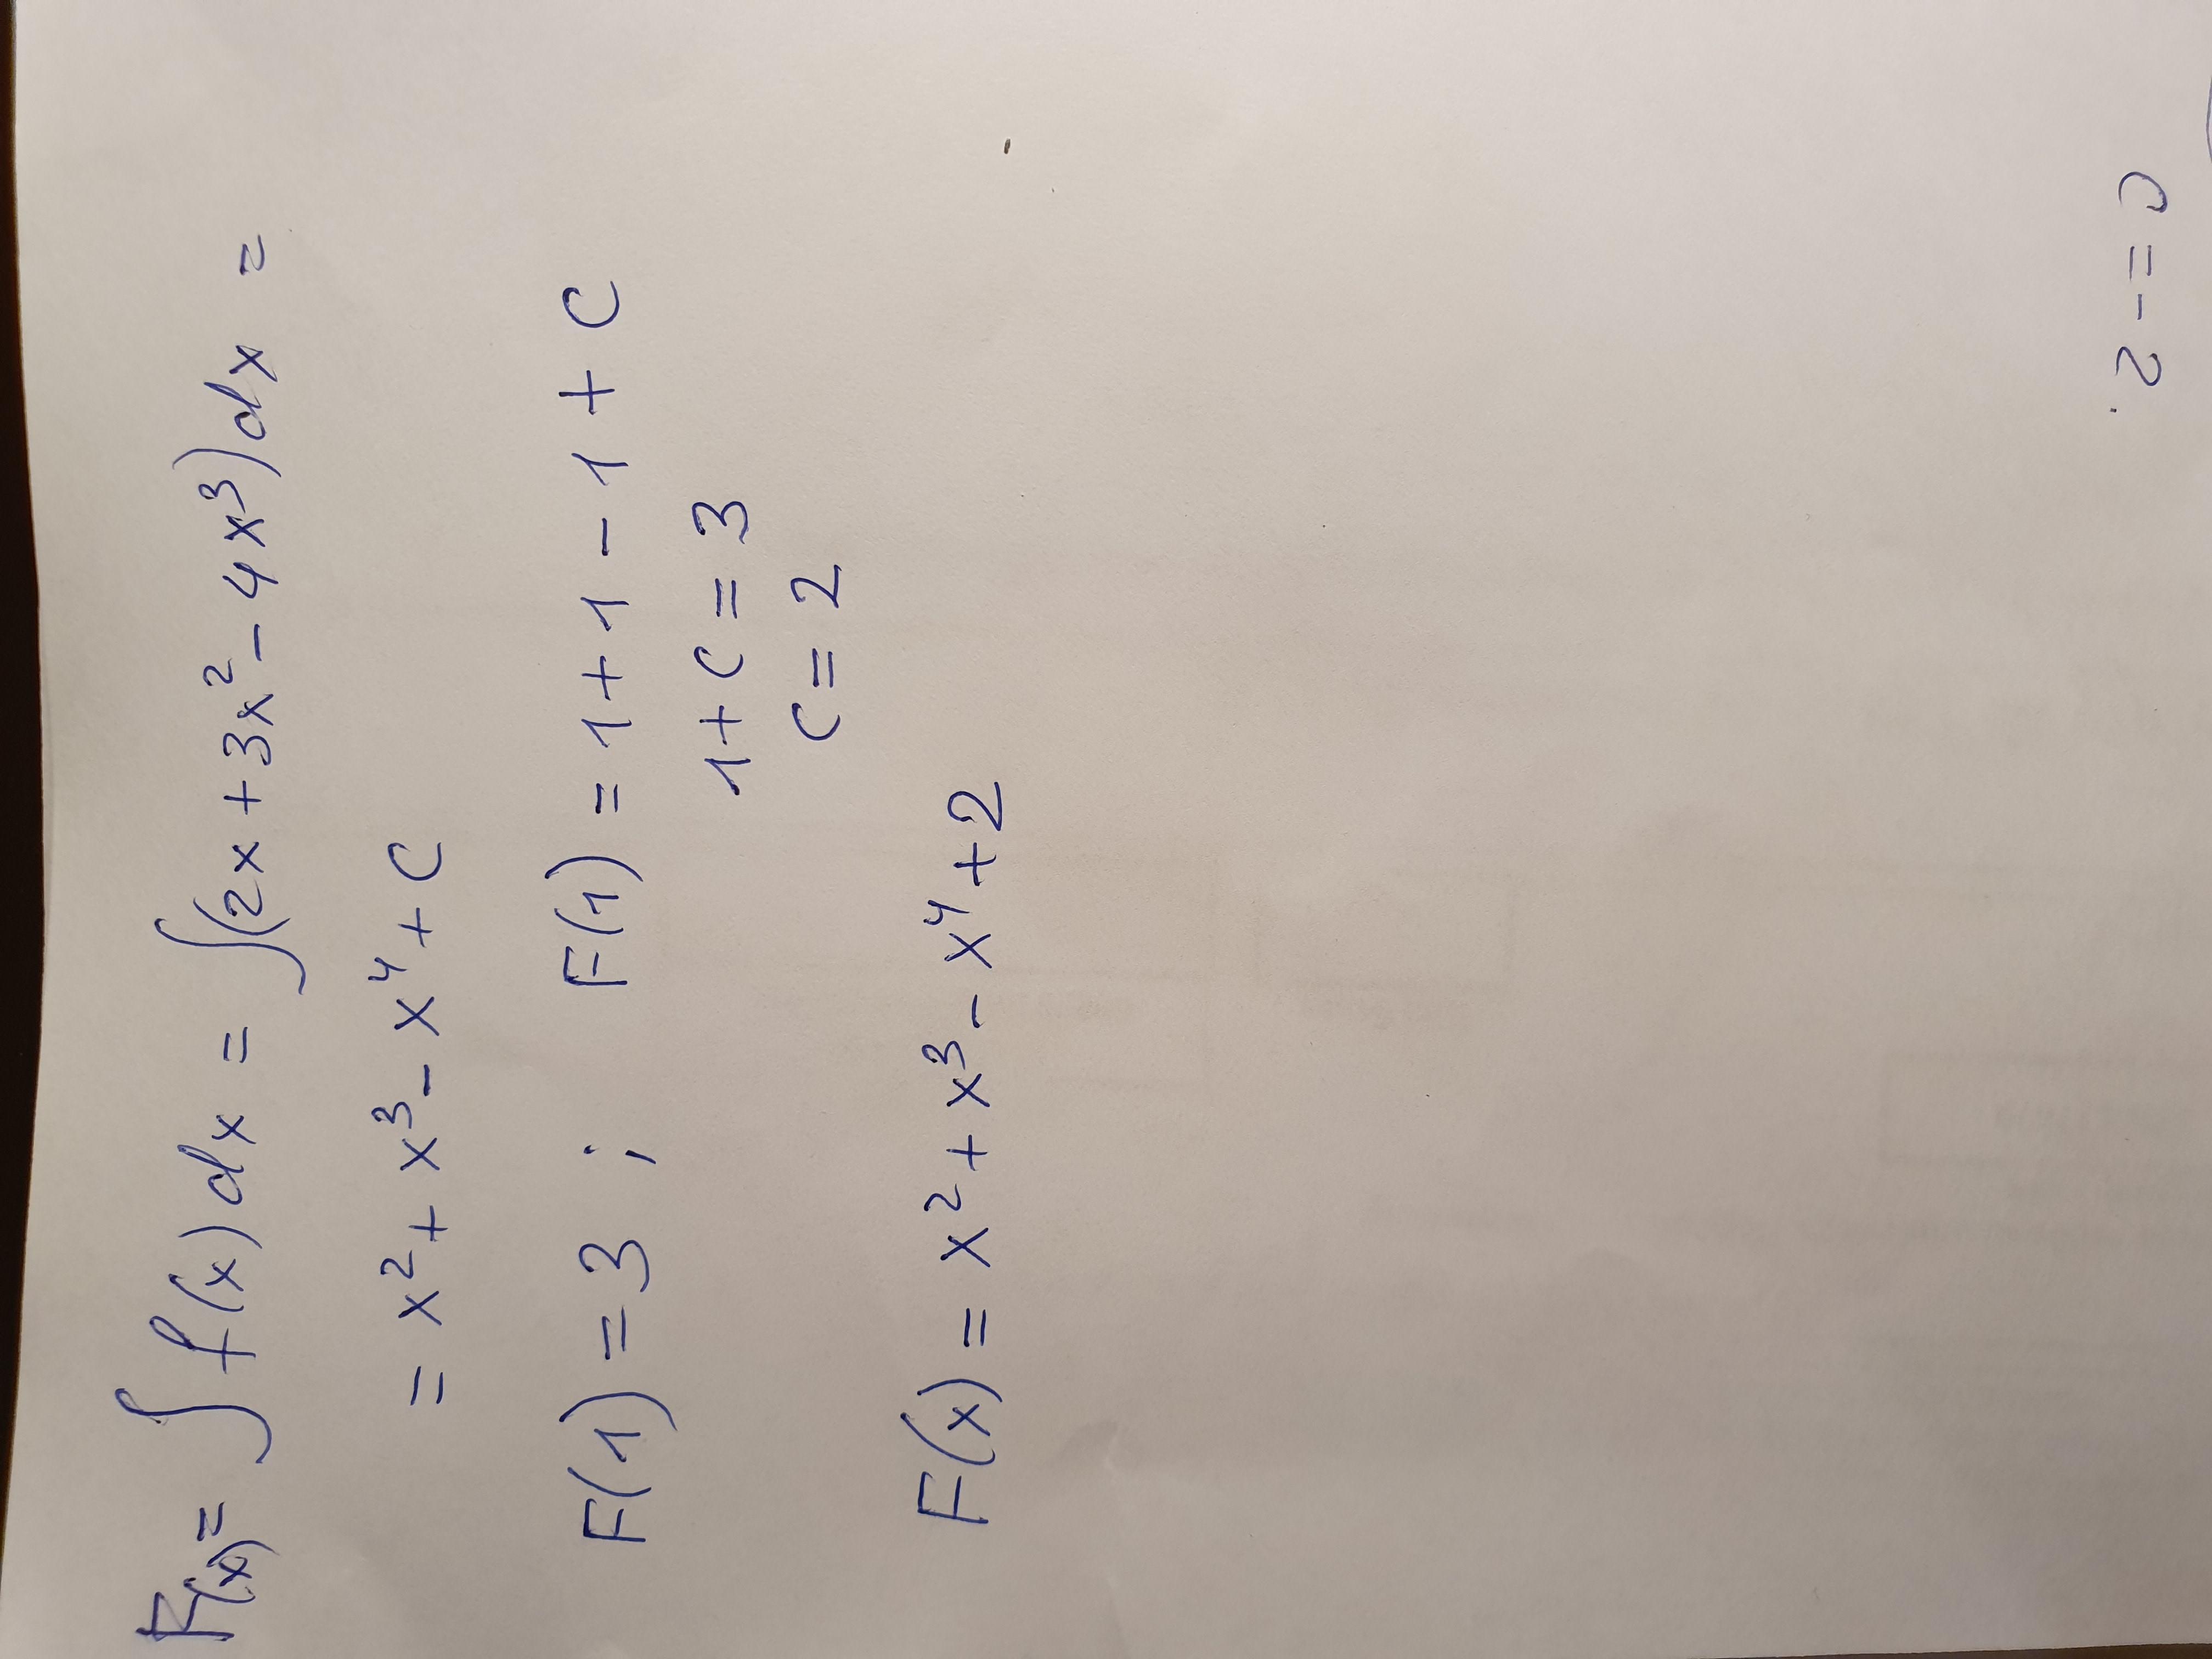 F(x) = ∫ f(x) dx = ∫(2x + 3x² - 4x³) dx =
= x² + x³ - x⁴ + C
F(1) = 3 ; F(1) = 1 + 1 - 1 + C
1 + C = 3
C = 2
F(x) = x² + x³ - x⁴ + 2
C = -2.